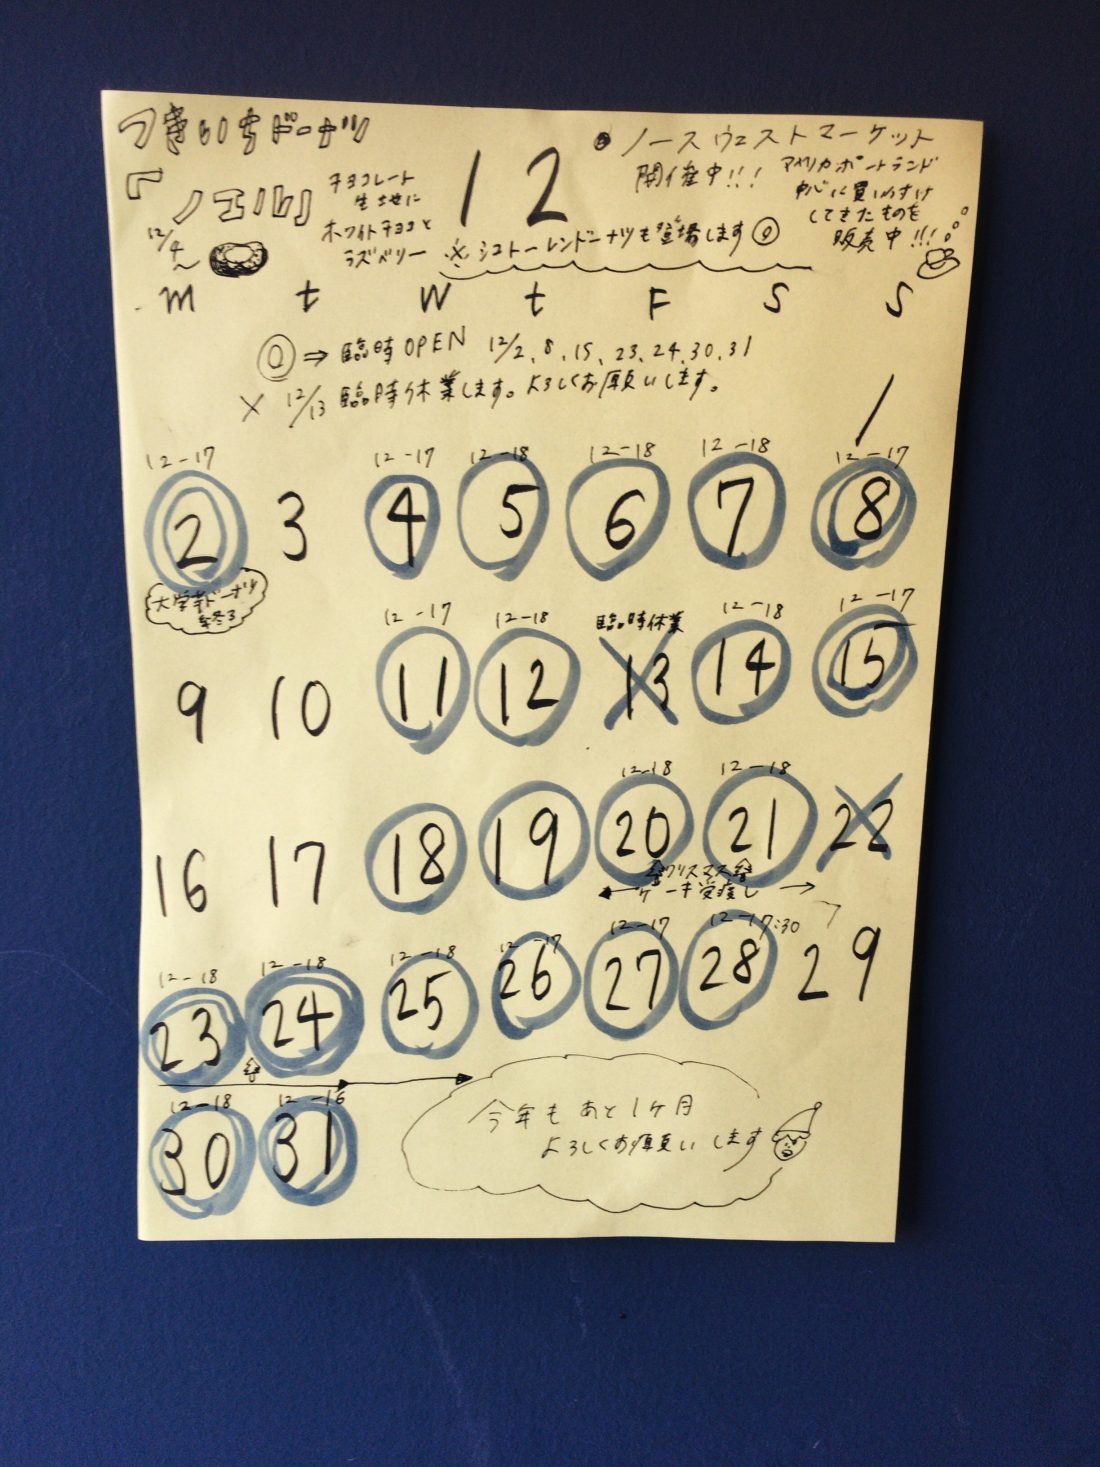 つきいちドーナツ
『ノエル』
チョコレート
生地に
ホワイトチョコと
ラズベリー
12/4～
12
●ノースウェストマーケット
開催中!!!
アメリカポートランド
中心に買い付け
してきたものを
販売中!!!
※シュトーレンドーナツも登場します
m t W t F S S
◎⇒臨時OPEN 12/2、8、15、23、24、30、31
× 12/13 臨時休業します。よろしくお願いします。
1
12-17 12-17 12-18 12-18 12-18 12-17
2 3 4 5 6 7 8
大学芋ドーナツ
終了
12-17 12-18 臨時休業 12-18 12-17
9 10 11 12 13 14 15
12-18 12-18
16 17 18 19 20 21 22
クリスマス
ケーキ受渡し
12-18 12-18 12-18 12-17 12-17 12-17:30
23 24 25 26 27 28 29
12-18 12-16
30 31
今年もあと1ヶ月
よろしくお願いします